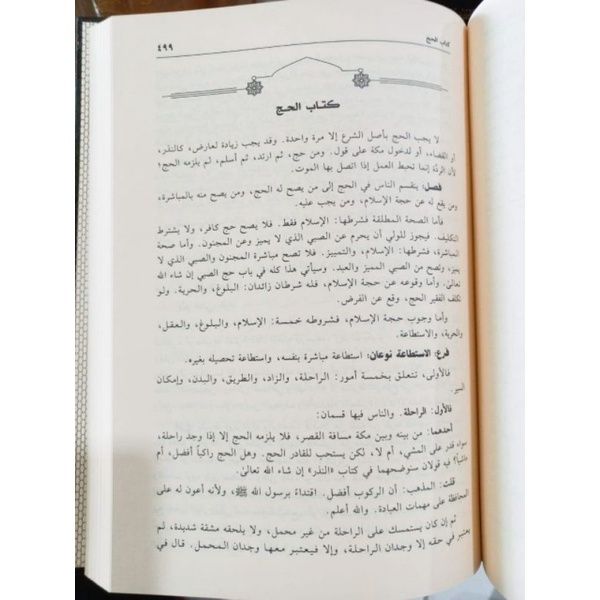 كتاب الحج
٤٩٩
كتاب الحج
لا يجب الحج بأصل الشرع إلا مرة واحدة. وقد يجب زيادة لعارض، كالنذر،
أو القضاء، أو لدخول مكة على قول. ومن حج، ثم ارتد، ثم أسلم، لم يلزمه الحج؛
لأن الردَّة إنما تحبط العمل إذا اتصل بها الموت.
فصل: ينقسم الناس في الحج إلى من يصح له الحج، ومن يصح منه بالمباشرة،
ومن يقع له عن حجة الإسلام، ومن يجب عليه.
فأما الصحة المطلقة فشرطها: الإسلام فقط. فلا يصح حج كافر، ولا يشترط
التكليف. فيجوز للولي أن يحرم عن الصبي الذي لا يميز وعن المجنون. وأما صحة
المباشرة، فشرطها: الإسلام، والتمييز. فلا تصح مباشرة المجنون والصبي الذي لا
يميز، وتصح من الصبي المميز والعبد. وسيأتي هذا كله في باب حج الصبي إن شاء الله
تعالىٰ. وأما وقوعه عن حجة الإسلام، فله شرطان زائدان: البلوغ، والحرية. ولو
تكلف الفقير الحج، وقع عن الفرض.
وأما وجوب حجة الإسلام، فشروطه خمسة: الإسلام، والبلوغ، والعقل،
والحرية، والاستطاعة.
فرع: الاستطاعة نوعان: استطاعة مباشرة بنفسه، واستطاعة تحصيله بغيره.
فالأولى، تتعلق بخمسة أمور: الراحلة، والزاد، والطريق، والبدن، وإمكان
السير.
فالأول: الراحلة. والناس فيها قسمان:
أحدهما: من بينه وبين مكة مسافة القصر، فلا يلزمه الحج إلا إذا وجد راحلة،
سواء قدر على المشي، أم لا، لكن يستحب للقادر الحج. وهل الحج راكباً أفضل، أم
ماشياً؟ فيه قولان سنوضحهما في كتاب «النذر» إن شاء الله تعالىٰ.
قلت: المذهب: أن الركوب أفضل. اقتداءً برسول الله ﷺ، ولأنه أعون له على
المحافظة على مهمات العبادة. والله أعلم.
ثم إن كان يستمسك على الراحلة من غير محمل، ولا يلحقه مشقة شديدة، لم
يعتبر في حقه إلا وجدان الراحلة، وإلا فيعتبر معها وجدان المحمل. قال في